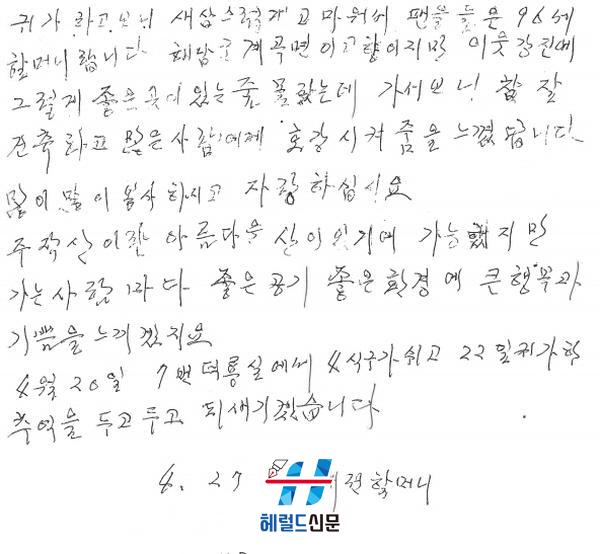 귀가 하고보니 새삼스럽게 고마워서 팬을 들은 96세
할머니 랍니다 해남군 계곡면이 고향이지만 이웃 강진에
그렇게 좋은곳이 있는줄 몰랐는데 가서보니 참 잘
건축하고 많은사람에게 호강시켜줌을 느꼈답니다
많이 많이 봉사 하시고 자랑하십시요
주작산이란 아름다운 산이있기에 가능했지만
가는사람마다 좋은공기 좋은환경에 큰행복과
기쁨을 느끼겠지요
4월 20일 7번 덕룡실에서 4식구가 쉬고 22일귀가한
추억을 두고두고 되새기겠습니다
4. 27 할머니
헤럴드신문